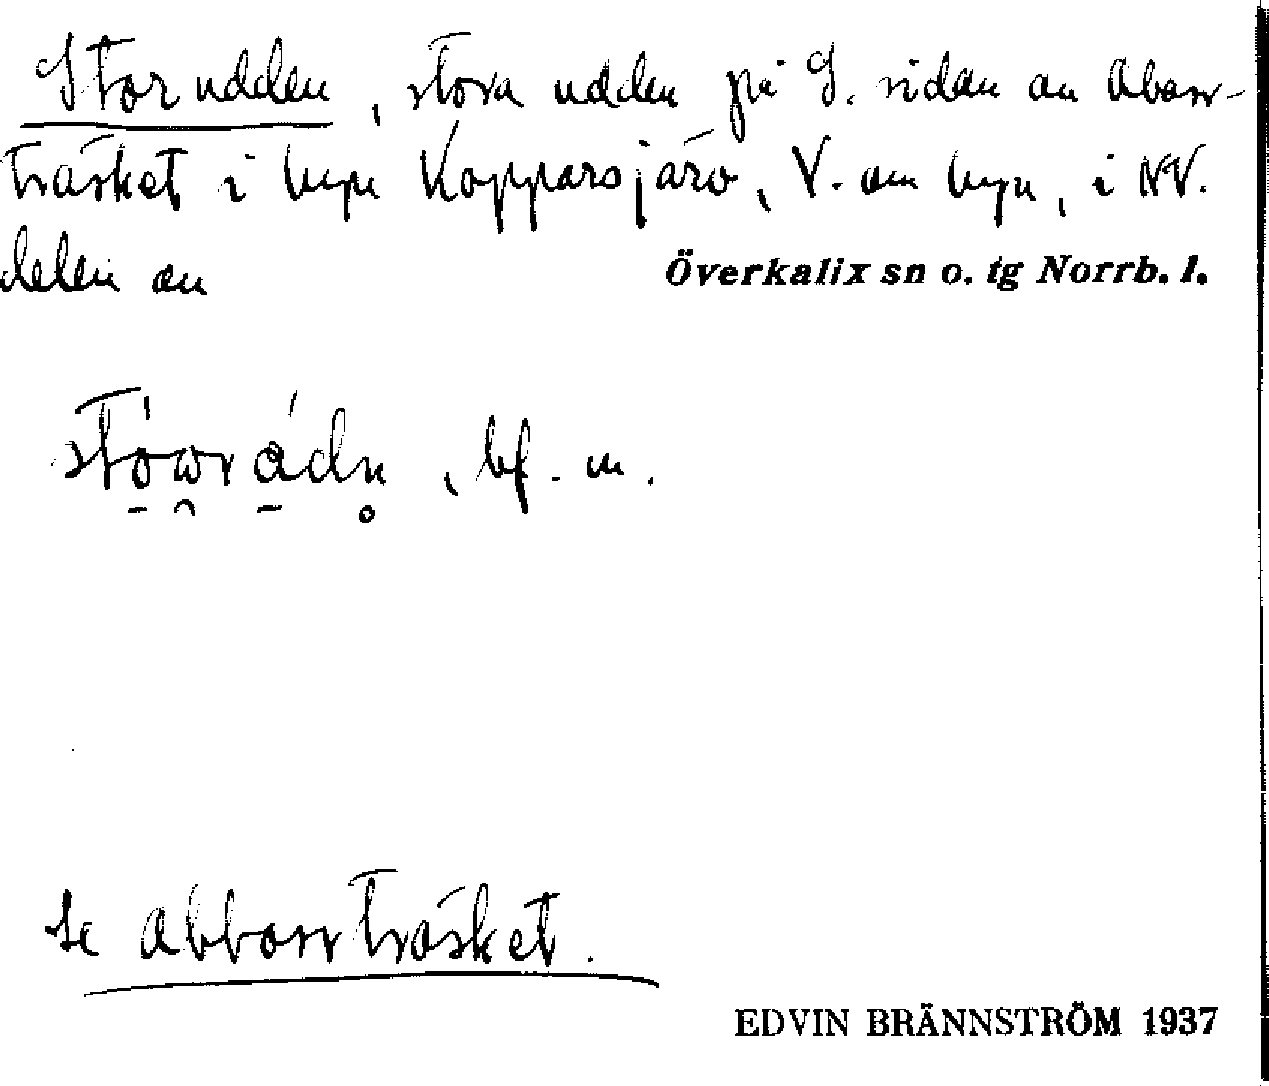 Storudden, stora udden på S. sidan av Abborr-
träsket i byn Kopparsjärv, V. om byn, i NV.
delen av Överkalix sn o. tg Norrb. l.
bf. m.
Se Abborrträsket.
EDVIN BRÄNNSTRÖM 1937